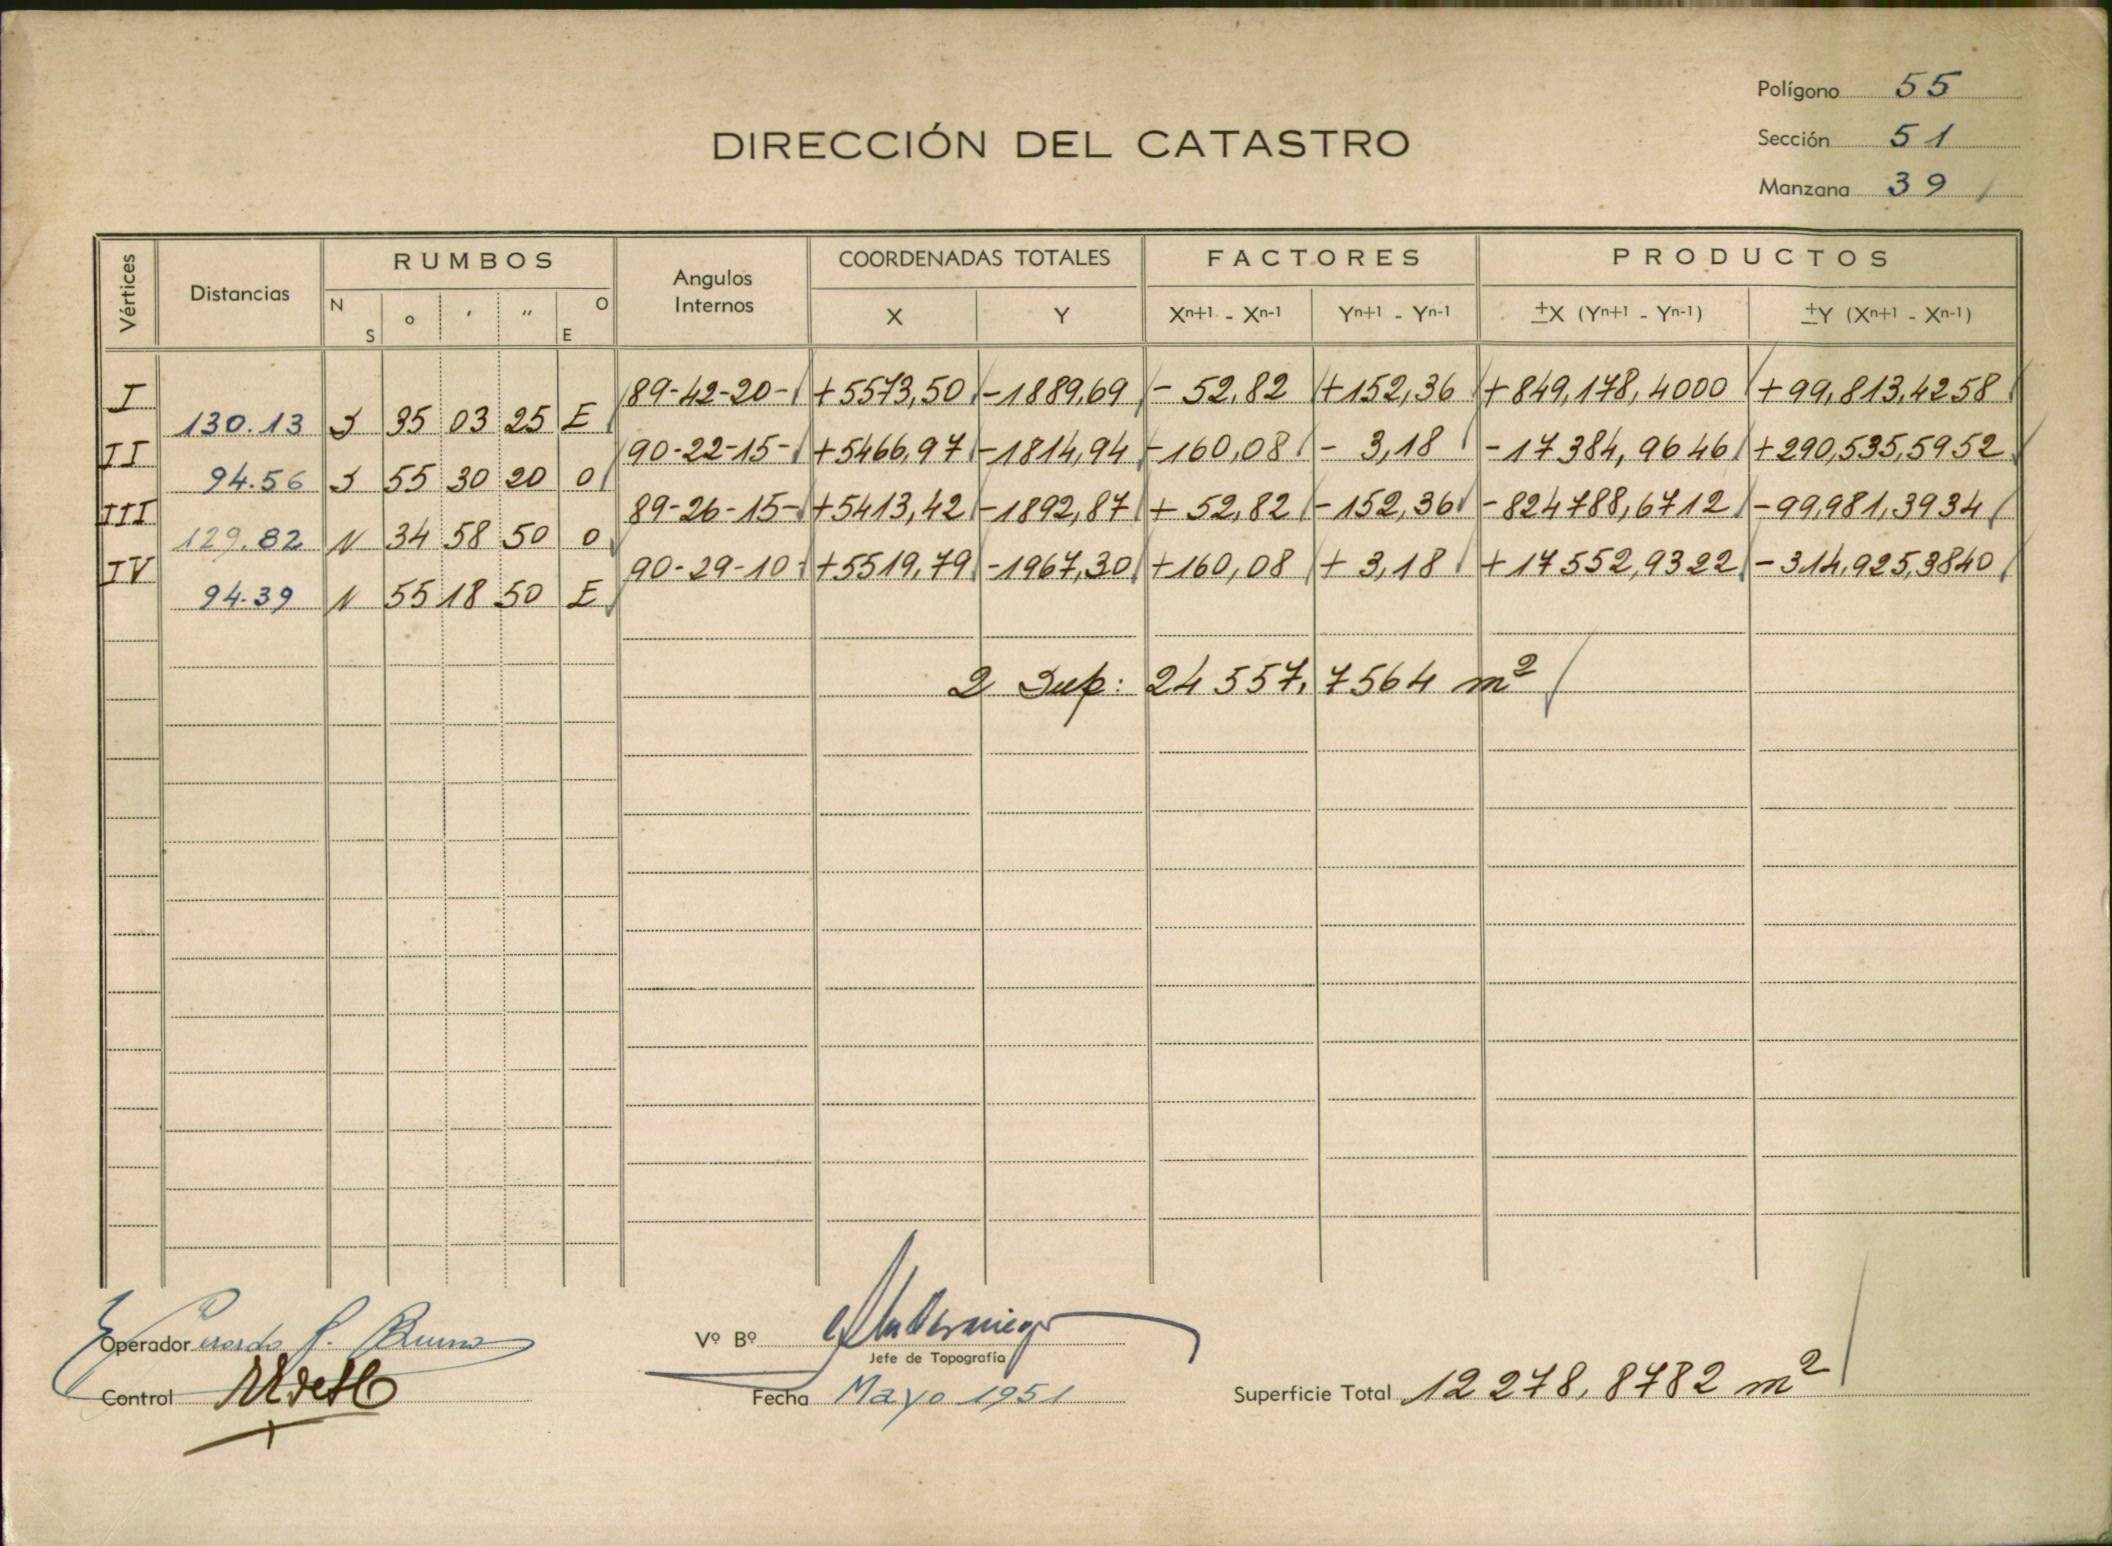 Polígono 55
DIRECCIÓN DEL CATASTRO
Sección 51
Manzana 39
Vértices Distancias RUMBOS Angulos Internos COORDENADAS TOTALES FACTORES PRODUCTOS
N S o ′ ″ O E X Y Xn+1 - Xn-1 Yn+1 - Yn-1 ±X (Yn+1 - Yn-1) ±Y (Xn+1 - Xn-1)
I 89-42-20- +5573,50 -1889,69 - 52,82 +152,36 +849,178,4000 +99,813,4258
130.13 S 35 03 25 E
II 90-22-15- +5466,97 -1814,94 -160,08 - 3,18 -17384,9646 +290,535,5952
94.56 S 55 30 20 O
III 89-26-15- +5413,42 -1892,87 + 52,82 -152,36 -824788,6712 -99,981,3934
129.82 N 34 58 50 O
IV 90-29-10- +5519,79 -1967,30 +160,08 + 3,18 +17552,9322 -314,925,3840
94.39 N 55 18 50 E
2 Sup: 24 557, 7564 m²
Operador
Vº Bº
Jefe de Topografía
Control
Fecha Mayo 1951
Superficie Total 12 278, 8782 m²